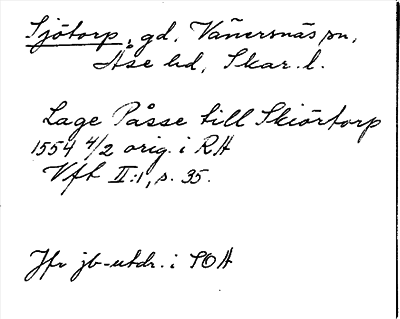 Sjötorp, gd. Vänersnäs sn,
Åse hd, Skar. l.
Lage Påsse till Skiörtorp
1554 4/2 orig. i RA
Vft II:1, s. 35.
Jfr jb-utdr. i SOA